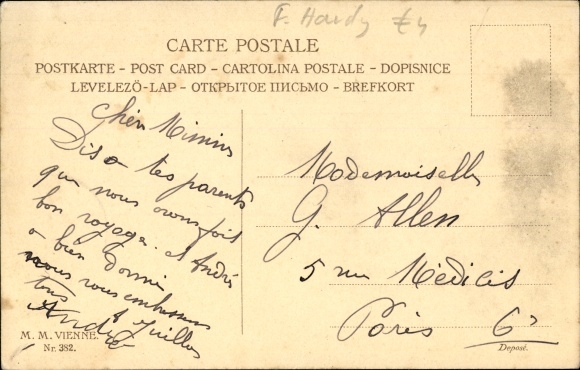 F. Hardy £4
CARTE POSTALE
POSTKARTE - POST CARD - CARTOLINA POSTALE - DOPISNICE
LEVELEZÖ-LAP - ОТКРЫТОЕ ПИСЬМО - BREFKORT
Chère Mimins
Dis a tes parents
que nous avons fait
bon voyage. et André
a bien dormi
nous vous embrassons
tous
André
Mademoiselle
G. Allen
5 rue Médicis
Paris 6e
M. M. VIENNE.
Nr. 382.
Deposé.